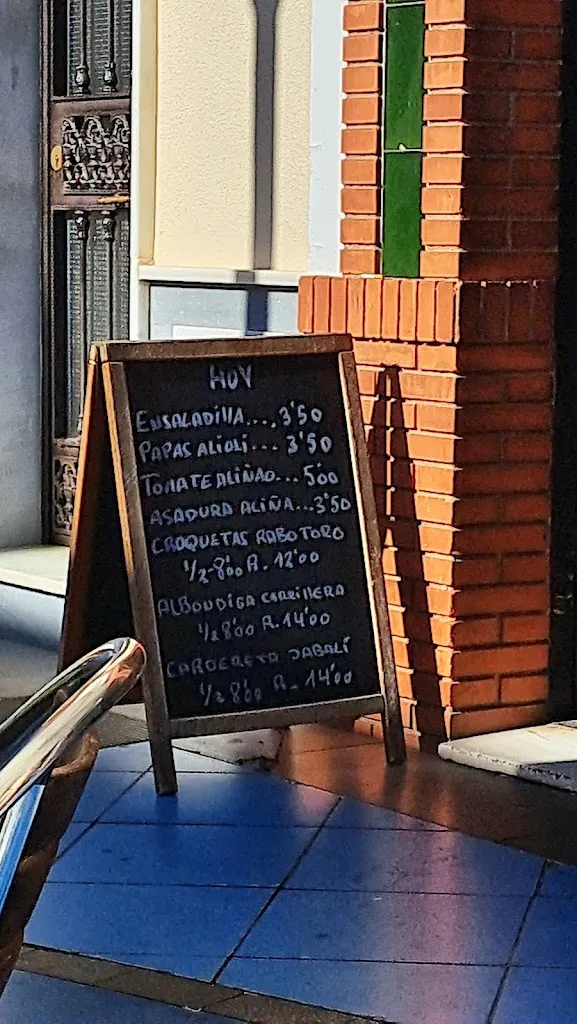 HOY
ENSALADILLA.... 3'50
PAPAS ALIOLI... 3'50
TOMATE ALIÑAO... 5'00
ASADURA ALIÑA...3'50
CROQUETAS RABO TORO
1/2-8'00 R. 12'00
ALBONDIGA CARRILLERA
1/2 8'00 R. 14'00
CARDERETA JABALÍ
1/2 8'00 R. 14'00